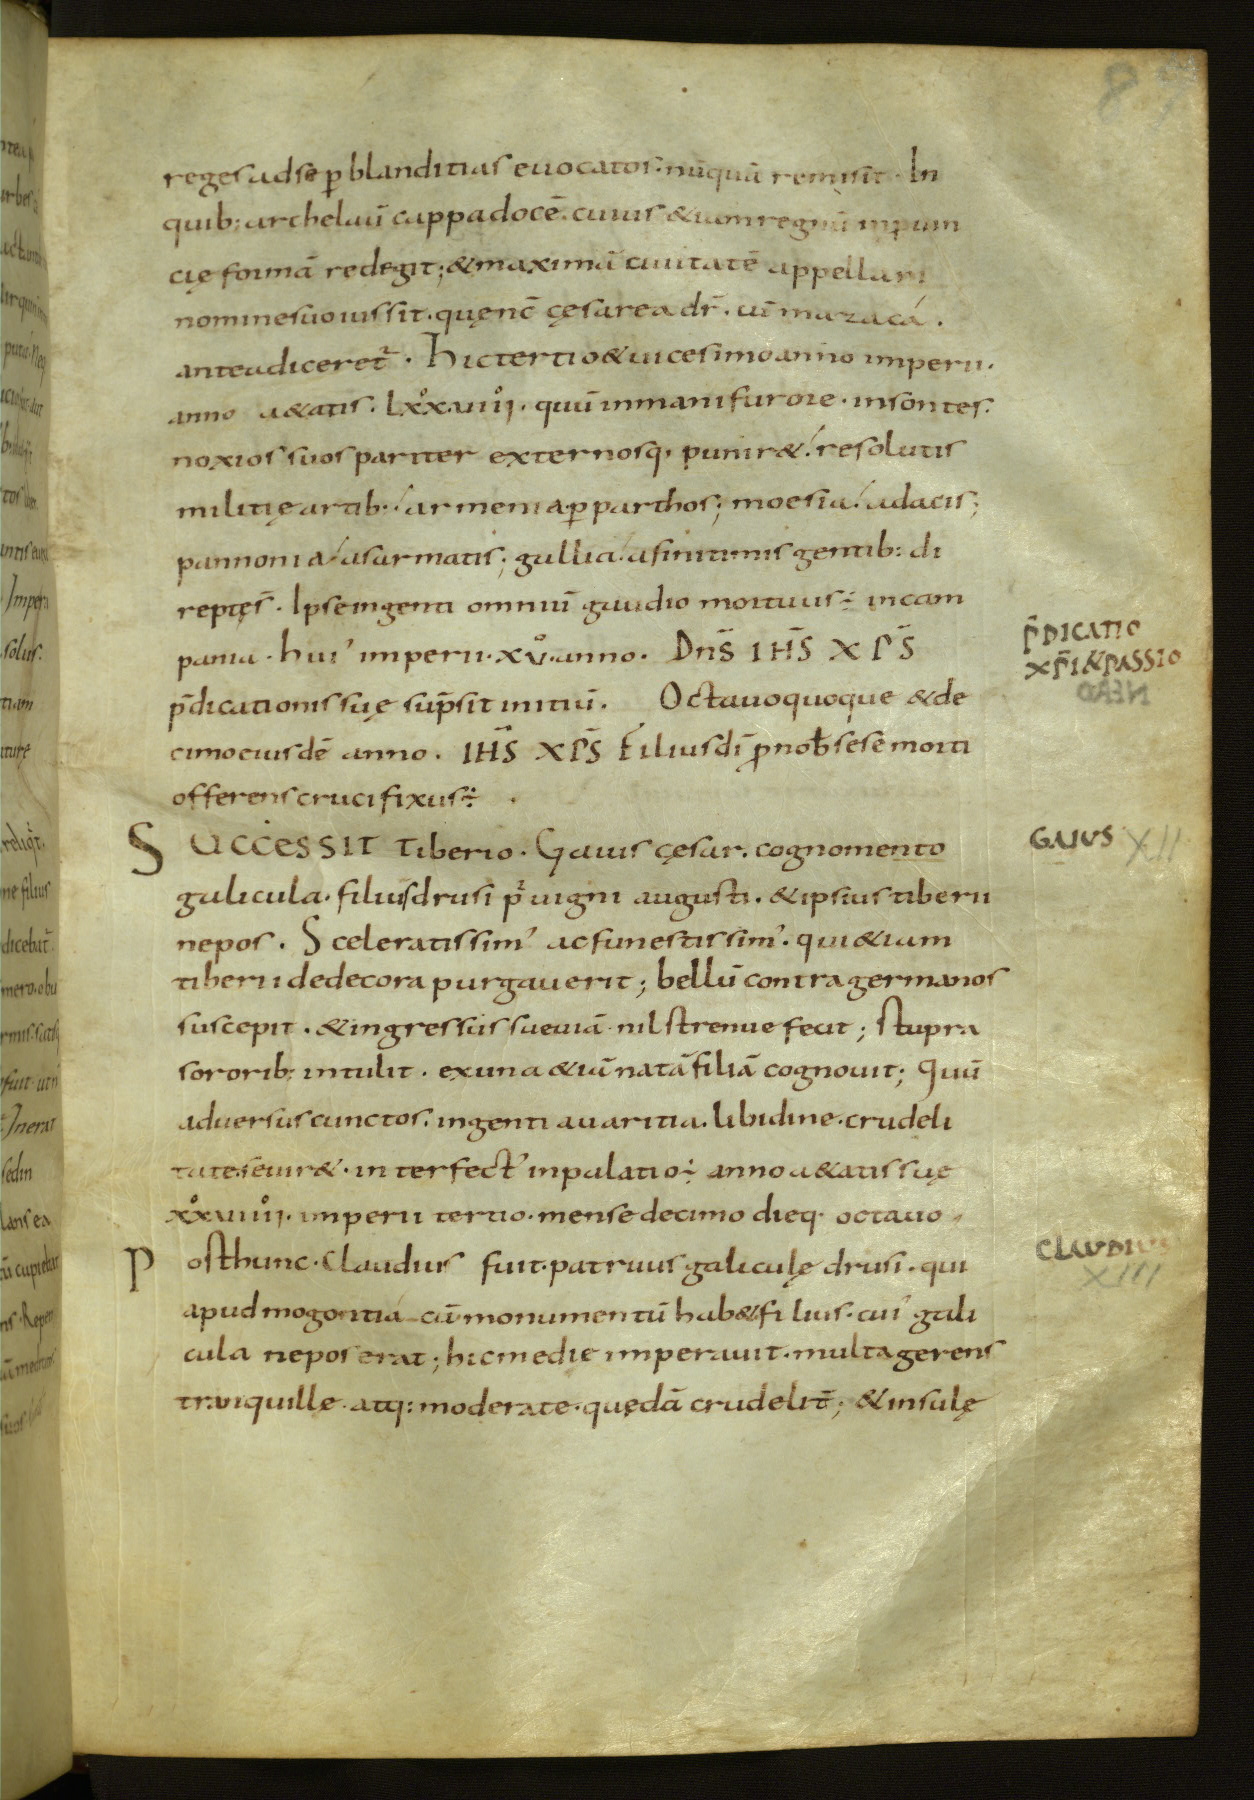 reges ad se ꝑ blanditias euocatos · nūquā remisit · In
quib: archelaū cappadocē · cuius &iam regnū in ꝓuin
cię formā redegit ; & maximā ciuitatē appellari
nomine suo iussit · quę nc̄ cęsarea dr̄ · cū mazaca ·
antea diceret̄ · Hic tertio & uicesimo anno imperii ·
anno a&atis · lxx uiii · quū inmani furore · insontes ·
noxios suos pariter externosq; punir& · resolutis
militię artib · armenia ꝑ parthos ; moesia a dacis ;
pannonia a sarmatis ; gallia a finitimis gentib: di
reptęs̄ · Ipse ingenti omniū gaudio mortuus ÷ in cam
pania · hui' imperii · xuͦ · anno · Dn̄s IHS̄ XPS̄
p̄dicationis suę sūpsit initiū · Octauo quoque & de
cimo eiusdē anno · IHS̄ XPS̄ Filius dī ꝓ nob̄ sese morti
offerens crucifixus ÷
SUCCESSIT Tiberio · Gaius cęsar · cognomento
galicula · filius drusi p̄uigni augusti · & ipsius tiberii
nepos · Sceleratissim' ac funestissim' · qui &iam
tiberii dedecora purgauerit ; bellū contra germanos
suscepit · & ingressus sueuiā nil strenue fecit ; stupra
sororib: intulit · ex una &iā natā filiā cognouit ; Quū
aduersus cunctos · ingenti auaritia · libidine · crudeli
tate seuir& · interfect' in palatio ÷ anno a&atis suę
xxuiiii · imperii tertio · mense decimo dieq · octauo
Post hunc · Claudius fuit · patruus galiculę drusi · qui
apud mogontiā cū monumentū hab& filius · cui' gali
cula nepos erat ; hic medie imperauit · multa gerens
tranquillę · atq: moderate · quędā crudelit̄ ; & insulę
P̄DICATIO
XP̄I & PASSIO
GAIUS XII
CLAUDIUS
XIII